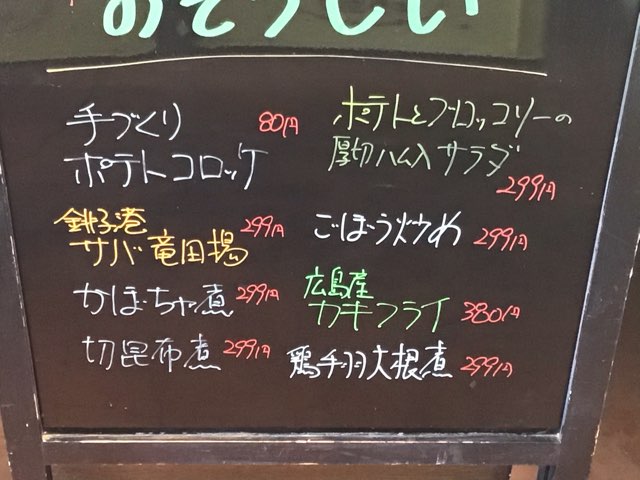 おそうしい
手づくり 80円
ポテトコロッケ
銚子港 299円
サバ竜田場
かぼちゃ煮 299円
切昆布煮 299円
ポテトとブロッコリーの
厚切ハム入サラダ
299円
ごぼう炒め 299円
広島産
カキフライ 380円
鶏手羽大根煮 299円